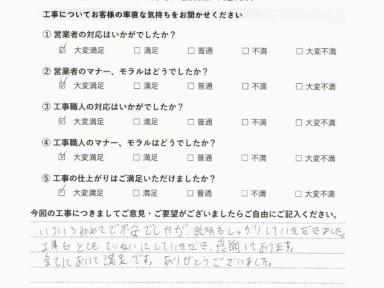 工事についてお客様の率直な気持ちをお聞かせください
① 営業者の対応はいかがでしたか?
☑ 大変満足 □ 満足 □ 普通 □ 不満 □ 大変不満
② 営業者のマナー、モラルはどうでしたか?
☑ 大変満足 □ 満足 □ 普通 □ 不満 □ 大変不満
③ 工事職人の対応はいかがでしたか?
☑ 大変満足 □ 満足 □ 普通 □ 不満 □ 大変不満
④ 工事職人のマナー、モラルはどうでしたか?
☑ 大変満足 □ 満足 □ 普通 □ 不満 □ 大変不満
⑤ 工事の仕上がりはご満足いただけましたか?
☑ 大変満足 □ 満足 □ 普通 □ 不満 □ 大変不満
今回の工事につきましてご意見・ご要望がございましたらご自由にご記入ください。
いろいろ初めてで不安でしたが、説明もしっかりしていただきました。
工事もとてもていねいにしていただき、感謝しております。
全てにおいて満足です。ありがとうございました。